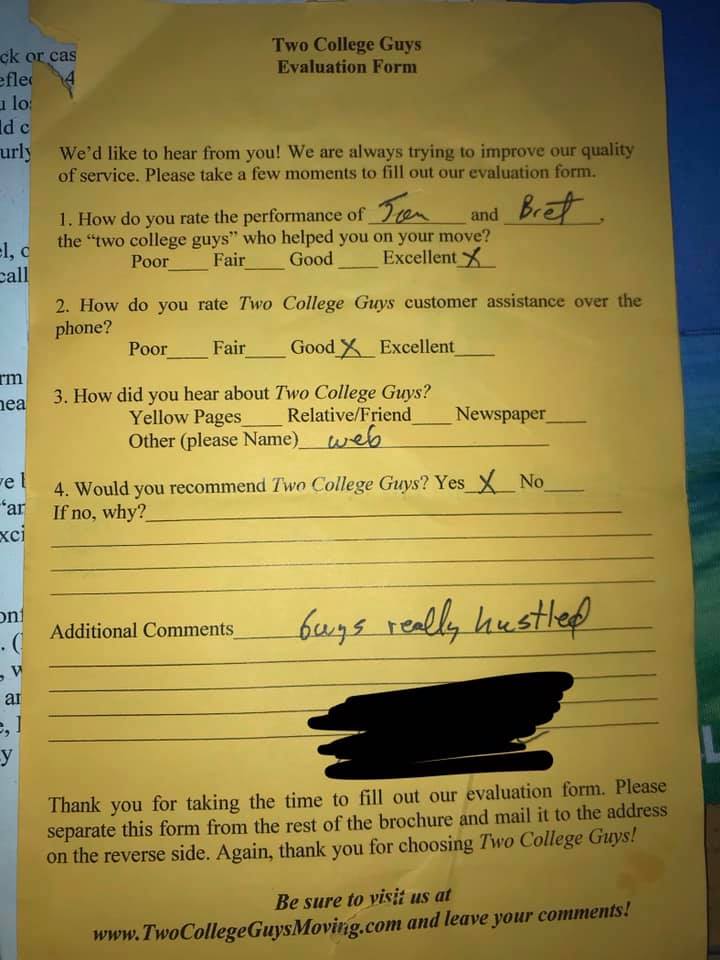 Two College Guys
Evaluation Form
ck or cas
efle 4
u lo
ld c
urly
We'd like to hear from you! We are always trying to improve our quality
of service. Please take a few moments to fill out our evaluation form.
1. How do you rate the performance of and Bret,
the "two college guys" who helped you on your move?
Poor____ Fair____ Good ____ Excellent X
el, c
call
2. How do you rate Two College Guys customer assistance over the
phone?
Poor____ Fair____ Good X Excellent____
rm
nea
3. How did you hear about Two College Guys?
Yellow Pages____ Relative/Friend____ Newspaper____
Other (please Name) web
ve
"an
xci
4. Would you recommend Two College Guys? Yes X No____
If no, why?
ont
. (
, w
ar
e, I
y
Additional Comments Guys really hustled
Thank you for taking the time to fill out our evaluation form. Please
separate this form from the rest of the brochure and mail it to the address
on the reverse side. Again, thank you for choosing Two College Guys!
Be sure to visit us at
www.TwoCollegeGuysMoving.com and leave your comments!
L